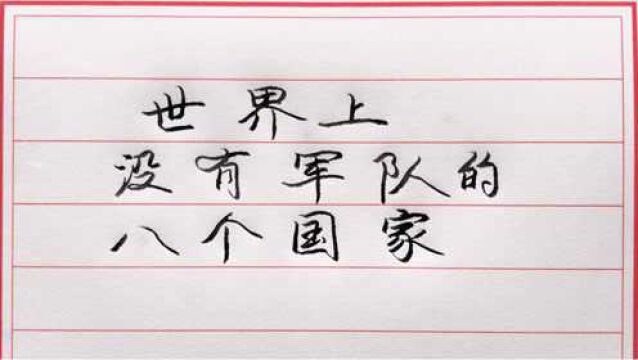 世界上
没有军队的
八个国家